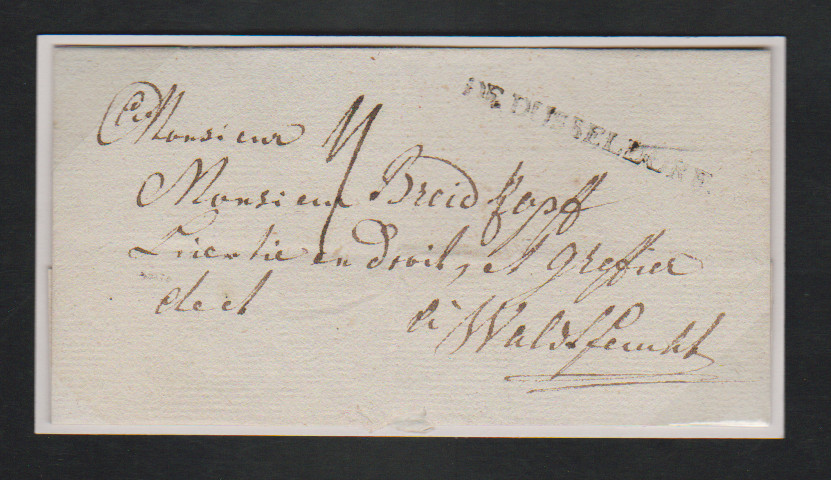 DE DUSSELDORF.
Monsieur
Monsieur Breidkopff
Licentié en Droit, et greffier
de et
à Waldfeucht